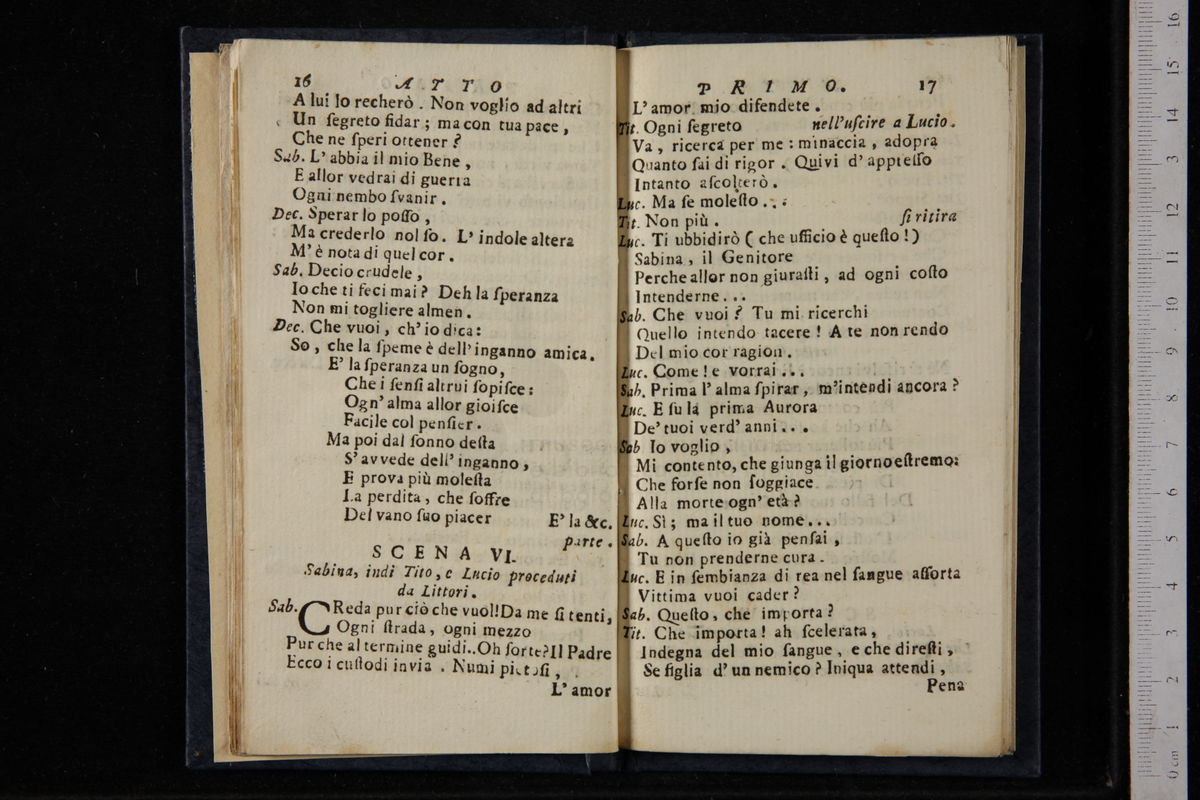 16 ATTO
A lui lo recherò . Non voglio ad altri
Un ſegreto fidar ; ma con tua pace ,
Che ne ſperi ottener ?
Sab. L' abbia il mio Bene ,
E allor vedrai di guerra
Ogni nembo ſvanir .
Dec. Sperar lo poſſo ,
Ma crederlo nol ſo . L' indole altera
M' è nota di quel cor .
Sab. Decio crudele ,
Io che ti feci mai ? Deh la ſperanza
Non mi togliere almen .
Dec. Che vuoi , ch' io dica :
So , che la ſpeme è dell' inganno amica .
E' la ſperanza un ſogno ,
Che i ſenſi altrui ſopiſce :
Ogn' alma allor gioiſce
Facile col penſier .
Ma poi dal ſonno deſta
S' avvede dell' inganno ,
E prova più moleſta
La perdita , che ſoffre
Del vano ſuo piacer E' la &c.
parte .
SCENA VI.
Sabina, indi Tito , e Lucio proceduti
da Littori .
Sab. CReda pur ciò che vuol! Da me ſi tenti ,
Ogni ſtrada , ogni mezzo
Pur che al termine guidi .. Oh ſorte? Il Padre
Ecco i cuſtodi invia . Numi pietoſi ,
L' amor
PRIMO. 17
L' amor mio difendete .
Tit. Ogni ſegreto nell'uſcire a Lucio .
Va , ricerca per me : minaccia , adopra
Quanto ſai di rigor . Quivi d' appreſſo
Intanto aſcolterò .
Luc. Ma ſe moleſto . . .
Tit. Non più . ſi ritira
Luc. Ti ubbidirò ( che ufficio è queſto ! )
Sabina , il Genitore
Perche allor non giuraſti , ad ogni coſto
Intenderne . . .
Sab. Che vuoi ? Tu mi ricerchi
Quello intendo tacere ! A te non rendo
Del mio cor ragion .
Luc. Come ! e vorrai . . .
Sab. Prima l' alma ſpirar , m'intendi ancora ?
Luc. E ſu la prima Aurora
De' tuoi verd' anni . . .
Sab Io voglio ,
Mi contento, che giunga il giorno eſtremo:
Che forſe non ſoggiace
Alla morte ogn' età ?
Luc. Sì ; ma il tuo nome . . .
Sab. A queſto io già penſai ,
Tu non prenderne cura .
Luc. E in ſembianza di rea nel ſangue aſſorta
Vittima vuoi cader ?
Sab. Queſto , che importa ?
Tit. Che importa ! ah ſcelerata ,
Indegna del mio ſangue , e che direſti ,
Se figlia d' un nemico ? Iniqua attendi ,
Pena
0 cm 1 2 3 4 5 6 7 8 9 10 11 12 3 14 15 16